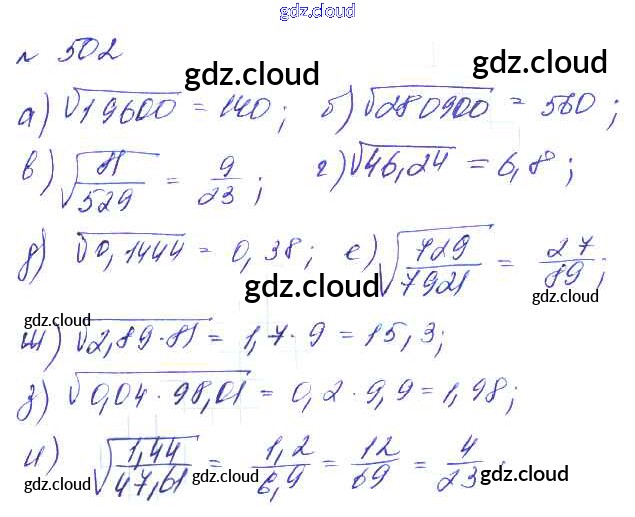 gdz.cloud
№ 502
gdz.cloud gdz.cloud
а) √19600 = 140; б) √280900 = 530;
в) √81/529 = 9/23; г) √46,24 = 6,8;
д) √0,1444 = 0,38; е) √729/7921 = 27/89;
gdz.cloud gdz.cloud
gdz.cloud
ж) √2,89·81 = 1,7·9 = 15,3;
gdz.cloud
з) √0,04·98,01 = 0,2·9,9 = 1,98;
gdz.cloud
и) √1,44/47,61 = 1,2/6,9 = 12/69 = 4/23;
gdz.cloud gdz.cloud gdz.cloud